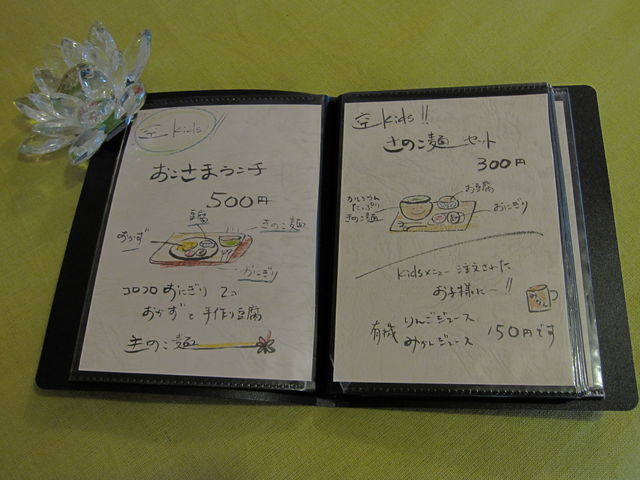 空 Kids
おこさまランチ
500円
豆腐
きのこ麺
おかず
おにぎり
コロコロおにぎり 2つ
おかずと手作り豆腐
きのこ麺
空 Kids!!
きのこ麺 セット
300円
お豆腐
カルシウム
たっぷり
きのこ麺
おにぎり
Kidsメニュー注文された
お子様に〜!!
みかん
有機 りんごジュース
みかんジュース
150円です